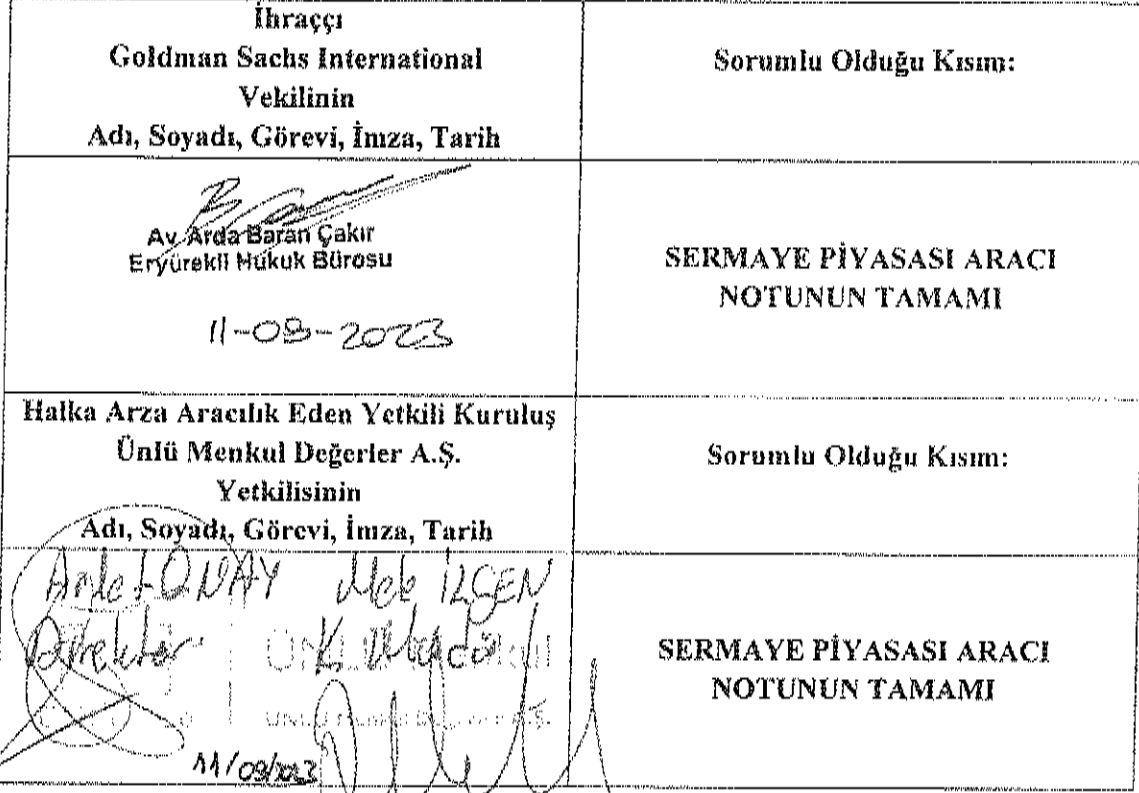 İhraççı
Goldman Sachs International
Vekilinin
Adı, Soyadı, Görevi, İmza, Tarih
Sorumlu Olduğu Kısım:
Av. Arda Baran Çakır
Eryürekli Hukuk Bürosu
11-09-2023
SERMAYE PİYASASI ARACI
NOTUNUN TAMAMI
Halka Arza Aracılık Eden Yetkili Kuruluş
Ünlü Menkul Değerler A.Ş.
Yetkilisinin
Adı, Soyadı, Görevi, İmza, Tarih
Sorumlu Olduğu Kısım:
ONAY İLGEN
Direktör
ÜNLÜ
11/09/2023
SERMAYE PİYASASI ARACI
NOTUNUN TAMAMI